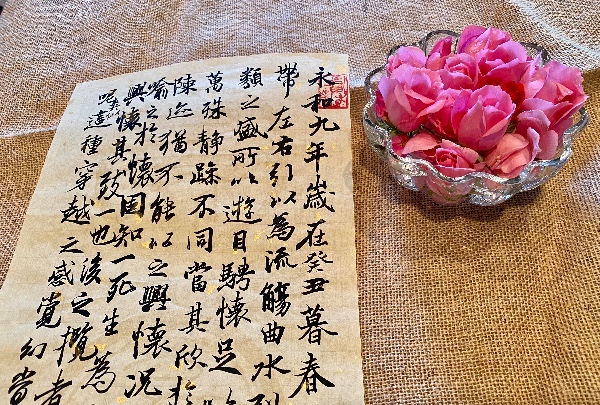 永和九年歲在癸丑暮春
帶左右引以為流觴曲水列
類之盛所以遊目騁懷足
萬殊静躁不同當其欣於
陳迹猶不能以之興懷況
喻之於懷固知一死生為
興懷其致一也後之攬者
呢這種穿越之感覺幻